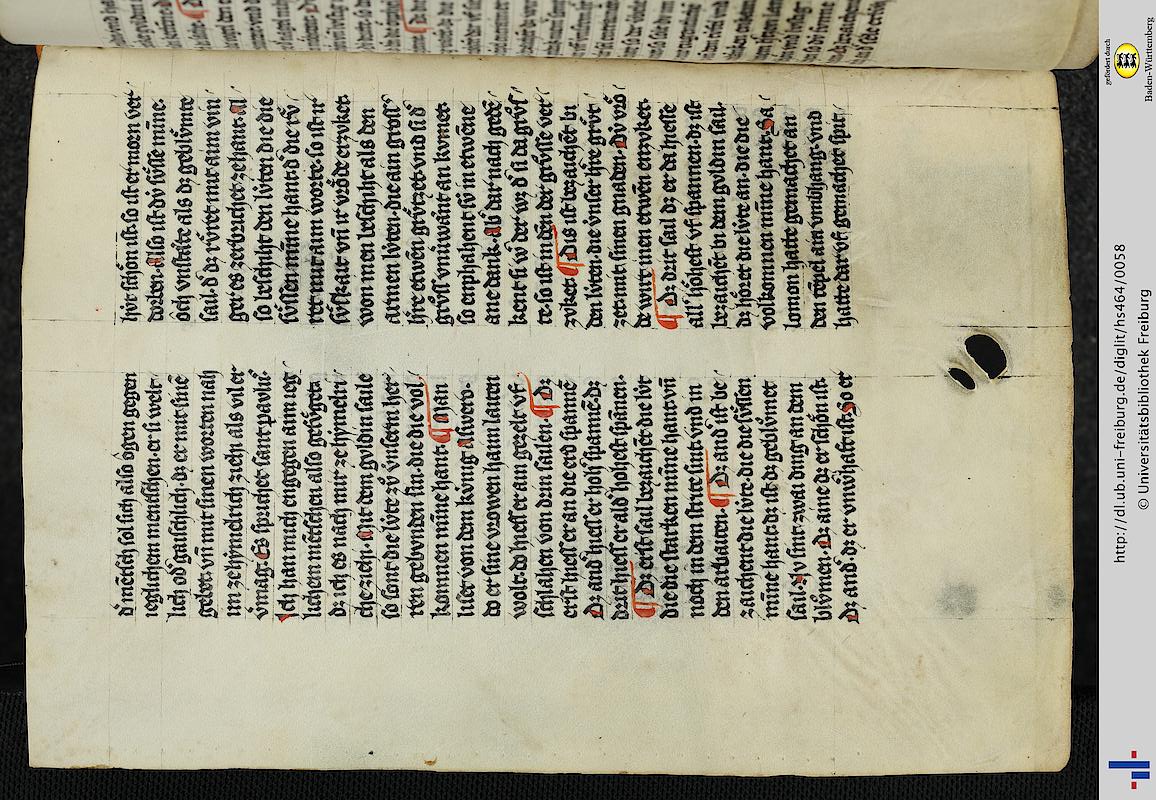 d᾽ mēsch sol sich also ȯgen gegen
ieglichem menschen er si welt
lich od᾽ gaischlich dz er mit sinē
gebet vn̄ mit sinen worten nah
im ze hymelrich zieh als vil er
v᾽mag Es sprichet sant pavlus
Ich han mich engegen aim ieg
lichem mētschen also gebȯget
dz ich es nach mir ze hymelri
che zieh · Mit dem guldin saile
so sont die lv̇te zů vnserm her
ren gebvnden sin · die die vol
komnen mīne hant · ¶ Man
liset von dem kv̇nig Asswero ·
do er sine vrowen haim laiten
wolt · do hiess er ain gezelt vf
schlahen von drin sailen · ¶ Dz
erst hiess er an die erd spannē
Dz and᾽ hiess er hoh᾽ spannē · Dz
drit hiess er ald᾽ hohest spānen ·
¶ Dz erst sail bezaichēt die lv̇t
die die starken mīne hant vn̄
noch in dem strite sint vnd in
den arbaiten · ¶ Dz and᾽ ist be
zaichent die lv̇te die die sv̇ssen
mīne hand · dz ist dz geblv̇met
sail · Nv sint zwai ding an dem
blůmen · Dz aine dz er schȯn ist ·
Dz and᾽ dz er vnw᾽haft ist · So er
hv̇t schȯn ist · so ist er morn ver
dorben · Also ist dv̇ sv̇sse mīne ·
ȯch vnstāte als dz geblv̇mte
sail · d᾽ dz rv̇ret mit aim vin
ger es zerbrichet zehant · Al
so beschiht den lv̇ten die die
sv̇ssen mīne hant · d᾽ die rv̇
ret mit aim worte · so ist ir
sv̇sskait vn̄ ir vrȯde erzvket ·
won in en beschiht als den
armen lv̇ten · die ain gross᾽
h᾽re etwen grv̇zet · vnd si d᾽
grv̇ss vmwānt an kvmet ·
so enphahent sv̇ in etwēne
ane dank · Ald᾽ dar nach gedē
kent si w᾽ der wz d᾽ si da grv̇s
te · so ist in denn der grv̇sse ver
zvket · ¶ Dis ist bezaichēt bi
den lv̇ten · die vnser h᾽re grv̇s
zet mit sinen gnaden · Div vrȯ
de wirt inen etwen enzvket ·
¶ Dz drit sail dz er da hiesse
all᾽ hȯhest vf spannen · dz ist
bezaichēt bi dem gvldin sail ·
dz hȯret die lv̇te an die die
volkomnen mīne hant · Sa
lomon hatte gemachet an
dem tēpel ain vmbhang · vnd
hatte dar vf gemachet spin
gefördert durch
Baden-Württemberg
http://dl.ub.uni-freiburg.de/diglit/hs464/0058
© Universitätsbibliothek Freiburg